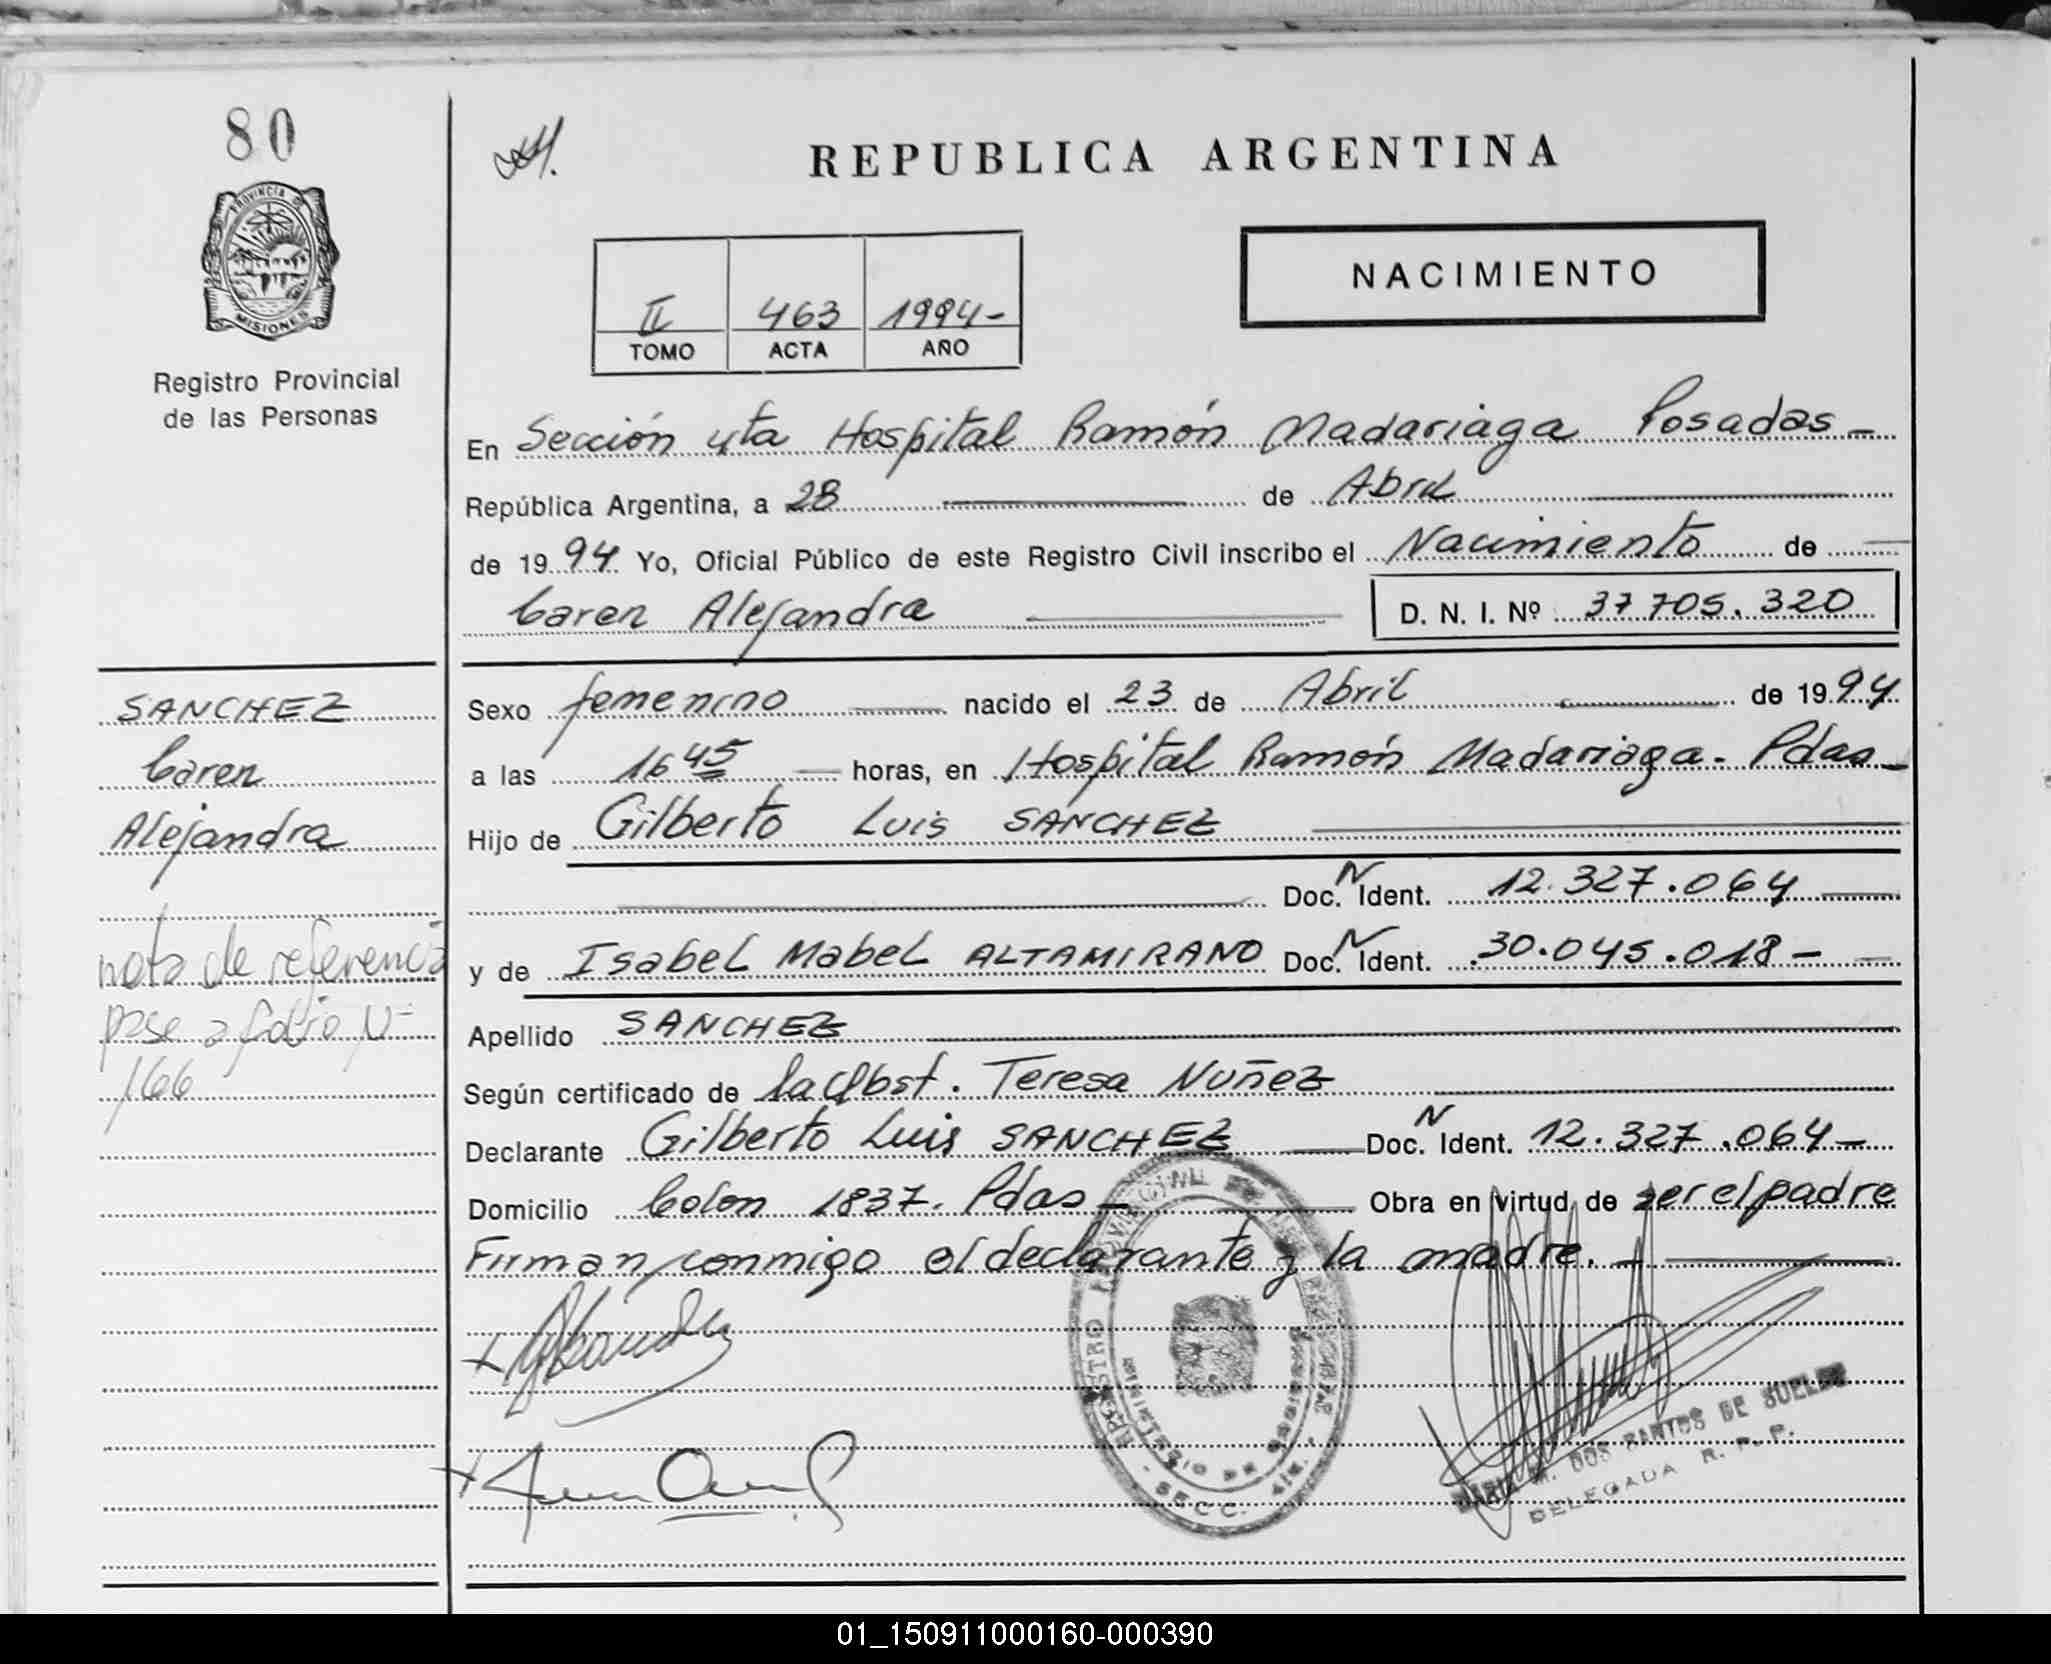 80
PROVINCIA D
MISIONES
Registro Provincial
de las Personas
REPUBLICA ARGENTINA
NACIMIENTO
II 463 1994-
TOMO ACTA AÑO
En Sección 4ta Hospital Ramón Madariaga Posadas-
República Argentina, a 28 de Abril
de 1994 Yo, Oficial Público de este Registro Civil inscribo el Nacimiento de
Caren Alejandra D. N. I. Nº 37.705.320
SANCHEZ
Caren
Alejandra
nota de referencia
pase a folio Nº
166
Sexo femenino nacido el 23 de Abril de 1994
a las 16 45 horas, en Hospital Ramón Madariaga. Pdas-
Hijo de Gilberto Luis SANCHEZ
Doc. N Ident. 12.327.064
y de Isabel Mabel ALTAMIRANO Doc. N Ident. 30.045.018-
Apellido SANCHEZ
Según certificado de la Obst. Teresa Nuñez
Declarante Gilberto Luis SANCHEZ Doc. N Ident. 12.327.064-
Domicilio Colon 1837. Pdas- Obra en virtud de ser el padre
Firman conmigo el declarante y la madre.-
SECC. 4ta.
DOS SANTOS DE SUELDO
DELEGADA R. P. P.
01_150911000160-000390